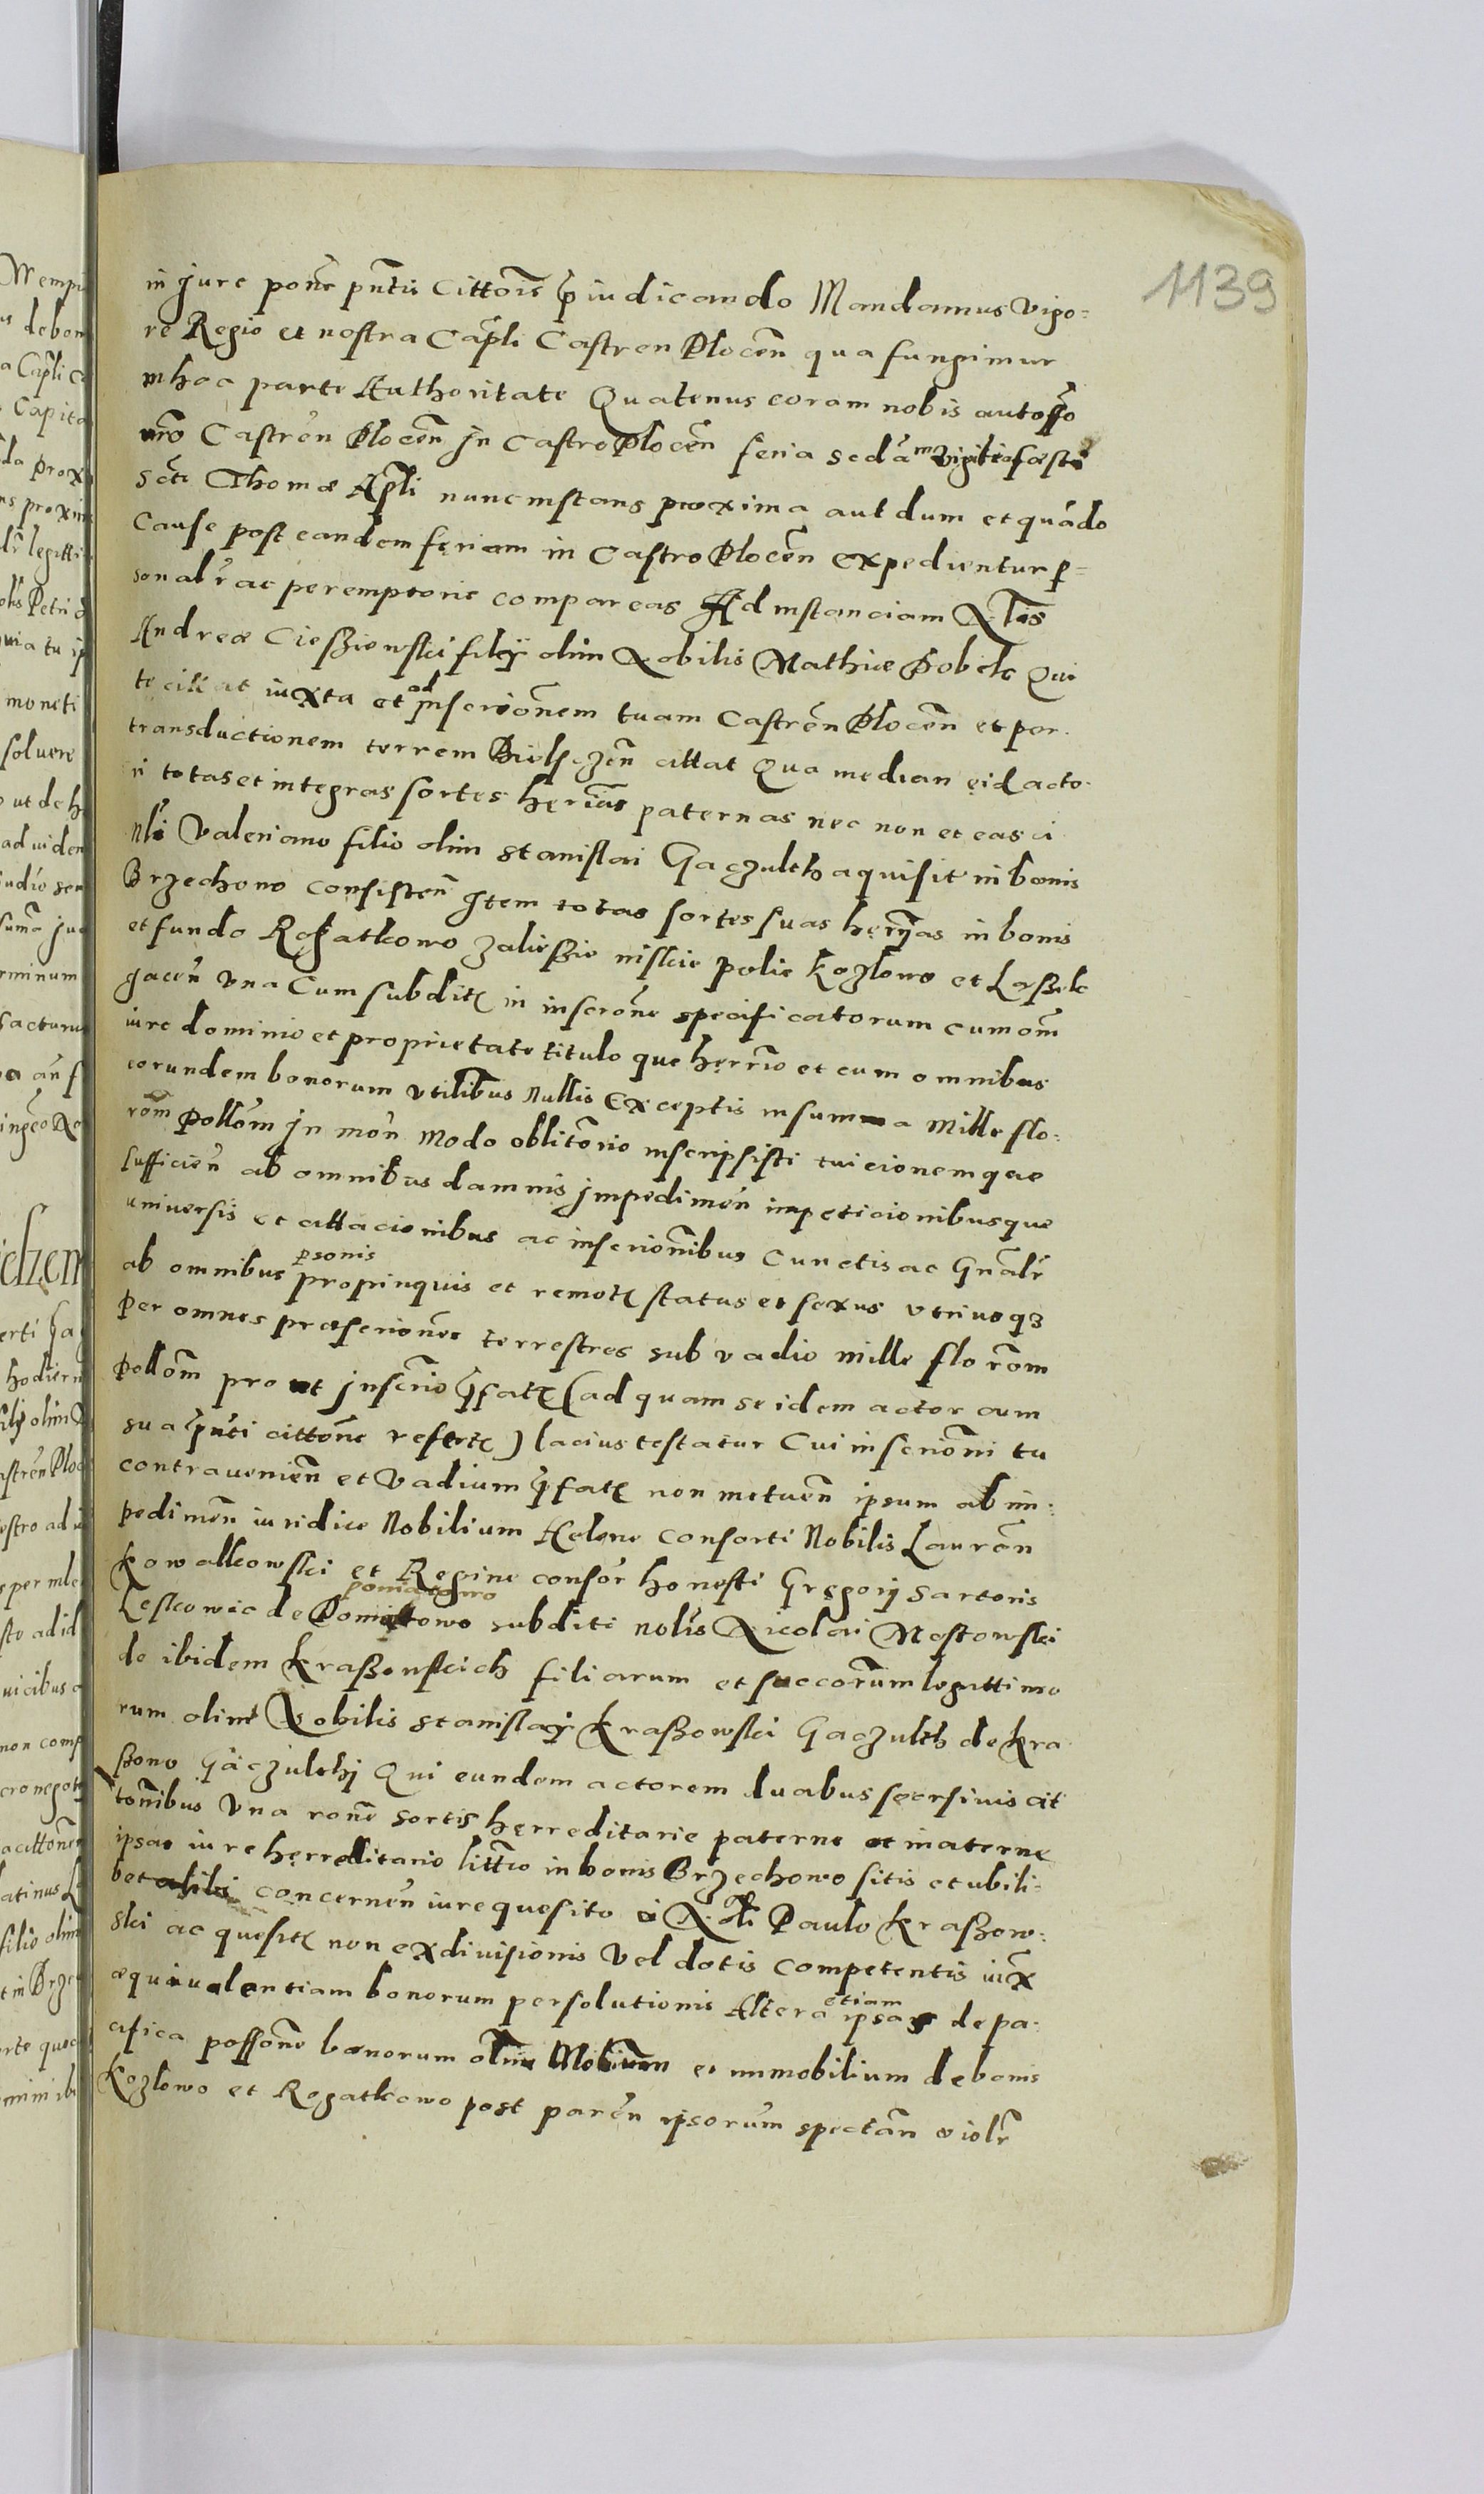 1139
in jure ponē pn̄tis Cittōis p̄iudicando Mandamus vigo=
re Regio et nostra Cap̄li Castren Plocen̄ qua fungimur
in hac parte Authoritate Quatenus coram nobis aut off̄o
nr̄o Castren̄ Plocen̄ Jn Castro Plocen̄ feria secda in vigilia festi
Scti Thomæ Ap̄li nunc instans proxima aut dum et quādo
Cause post eandem feriam in Castro Plocen̄ expedientur p=
sonalr̄ ac peremptorie compareas Ad instanciam Nblis
Andreæ Ciesziewski filij olim Nobilis Mathiæ Dobek Qui
te citat iuxta et ad jnscrionem tuam Castren̄ Plocen̄ et per
transductionem terrem Bielszczen̄ cittat Qua median eid acto
ri totas et integras sortes heriās paternas nec non et eas ci
Nli Valeriano filio olim Stanislai Gaczulth aquisit in bonis
Brzechowo consisten̄ Jtem totas sortes suas herijas in bonis
et fundo Rogatkowo zalieszie niskie polie Kozlowo et Laszek
Jacen̄ vna Cum subdit in inscrōne specificatorum cum om̄
iure dominio et proprietate titulo que herrio et cum omnibus
eorundem bonorum vtilibus Nullis Exceptis in summa Mille flo=
rōm Pollōm Jn mon̄ Modo oblitorio inscripsisti tuicionemque
sufficien̄ ab omnibus damnis jmpedimen̄ impeticionibusque
universis et cittacionibus ac inscrionibus Cunctis ac Gn̄alr̄
ab omnibus psonis propinquis et remot status et sexus vtriusq3
Per omnes præscriones terrestres sub vadio mille florōm
Pollōm pro ut jnscrio p̄fat (ad quam se idem actor cum
sua p̄nti cittōne refert) lacius testatur Cui inscrioni tu
contravenien̄ et Vadium p̄fat non metuen̄ ipsum ab im=
pedimen̄ iuridice Nobilium Helene Consorti Nobilis Lauren̄
Kowalkowski et Regine consor̄ honesti Gregorij sartoris
Leskowic de poniatowo subditi nolis Nicolai Mostowski
de ibidem Kraszewskich filiarum et succorum legittimo
rum olim Nobilis Stanislaij Kraszowski Gaczulth de Kra
szowo Gaczulthj Qui eundem actorem duabus seorsiuis cit
tonibus Vna rone sortis herreditarie paterne et materne
ipsas iure herreditario littio in bonis Brzechowo sitis et ubili=
bet concernen̄ iure quesito Nobli Paulo Kraszow=
ski ac quesit non exdivisionis Vel dotis competentis iux̄
æquivalentiam bonorum persolutionis Altera etiam ipsas de pa=
cifica possōne bonorum Mobilium et immobilium de bonis
Kozlowo et Rogatkowo post paren̄ ipsorum spectan̄ violr̄